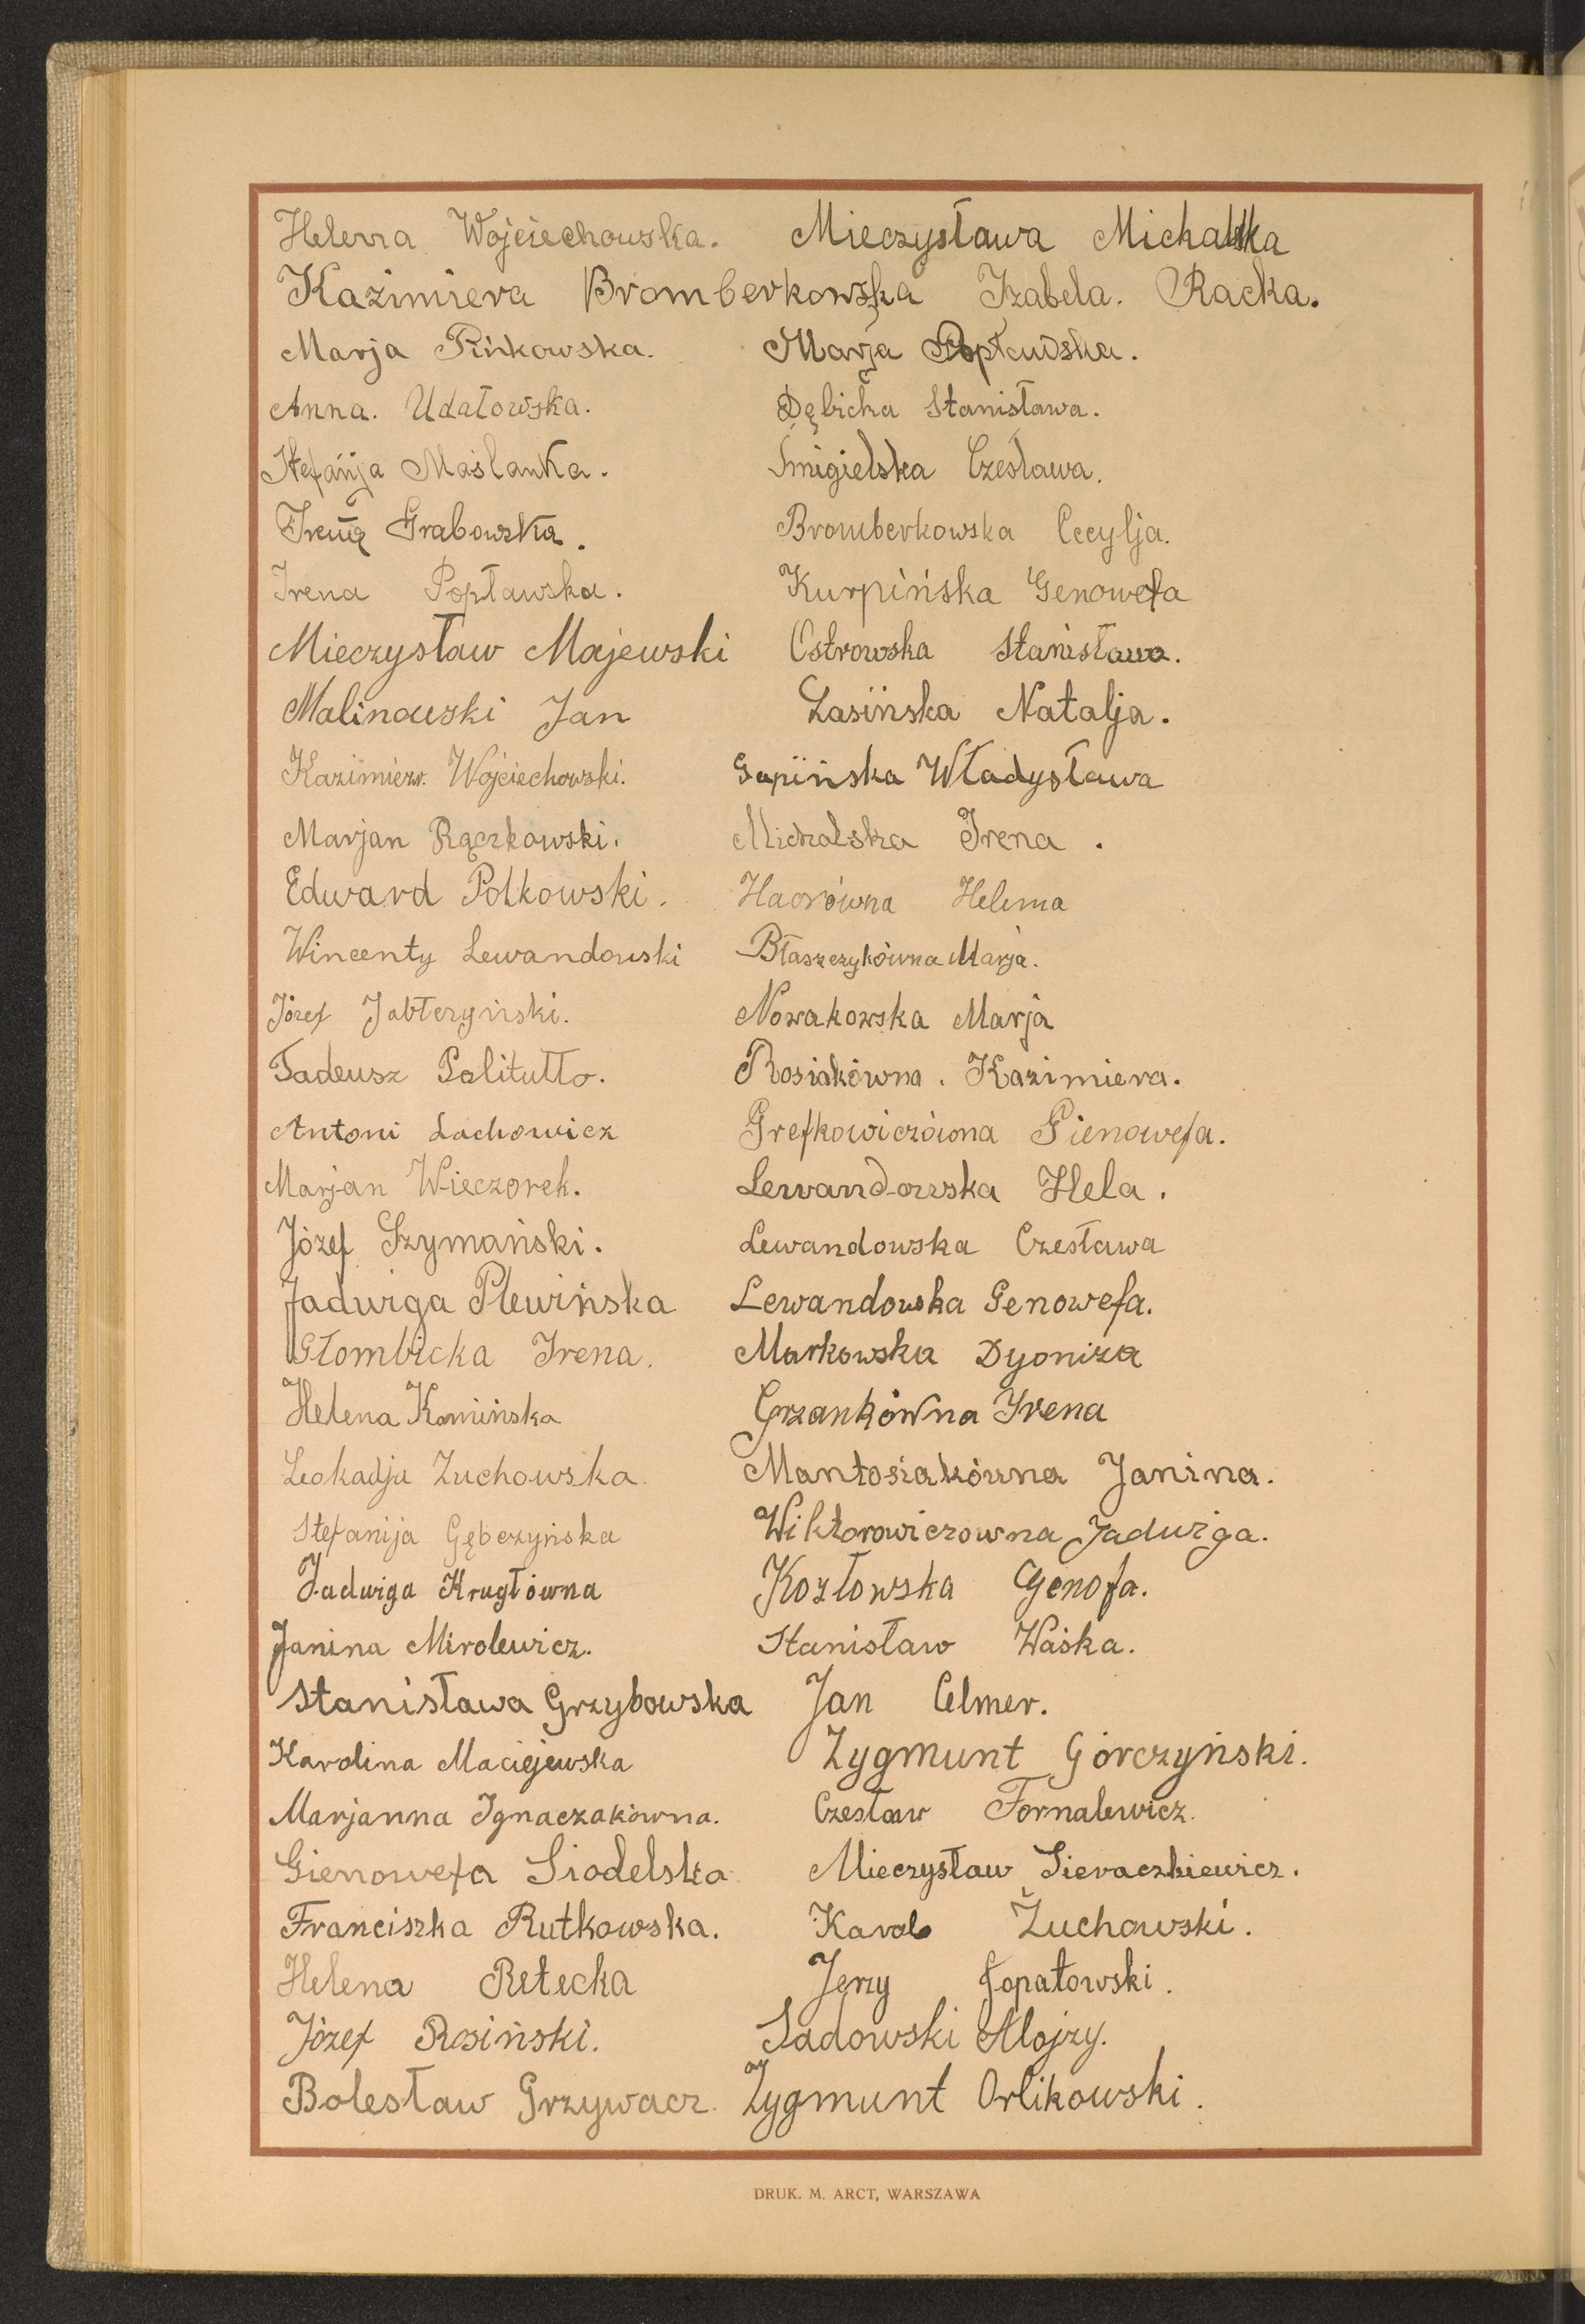 Helena Wojciechowska. Mieczysława Michalska
Kazimiera Bromberkowska Izabela. Racka.
Marja Pińkowska. Marja Popławska.
Anna. Udałowska. Dębicka Stanisława.
Stefanja Maślanka. Śmigielska Czesława.
Irena Grabowska. Bromberkowska Cecylja.
Irena Popławska. Kurpińska Genowefa
Mieczysław Majewski Ostrowska Stanisława.
Malinowski Jan Łasińska Natalja.
Kazimierz Wojciechowski. Gapińska Władysława
Marjan Rączkowski. Michalska Irena.
Edward Polkowski. Helena
Wincenty Lewandowski Błaszczykówna Marja.
Józef Nowakowska Marja
Tadeusz Rosiakówna. Kazimiera.
Antoni Lachowicz Grefkowiczówna Gienowefa.
Marjan Wieczorek. Lewandowska Hela.
Józef Szymański. Lewandowska Czesława
Jadwiga Plewińska Lewandowska Genowefa.
Głombicka Irena. Markowska Dyoniza
Helena Kamińska Grzankówna Irena
Leokadja Żuchowska. Mantosiakówna Janina.
Stefanija Gębczyńska Wiktorowiczowna Jadwiga.
Jadwiga Krugłówna Kozłowska Genofa.
Janina Mirolewicz. Stanisław Waśka.
Stanisława Grzybowska Jan Celmer.
Karolina Maciejewska Zygmunt Górczyński.
Marjanna Ignaczakówna. Czesław Fornalewicz.
Gienowefa Siodelska Mieczysław Sieraczkiewicz.
Franciszka Rutkowska. Karol Żuchowski.
Helena Retecka Jerzy Łopatowski.
Józef Rosiński. Sadowski Alojzy.
Bolesław Grzywacz. Zygmunt Orlikowski.
DRUK. M. ARCT, WARSZAWA